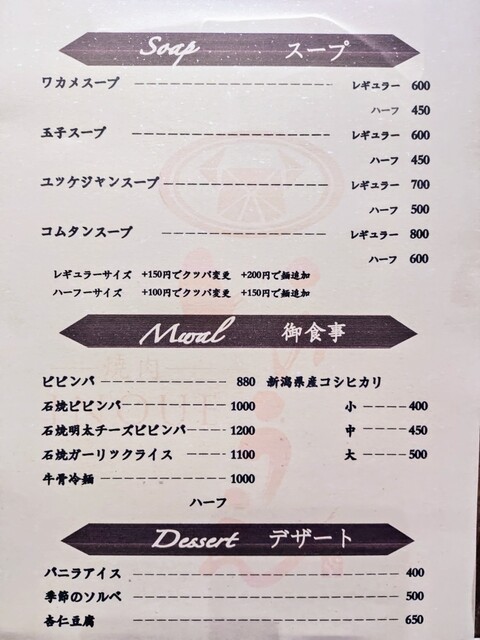 Soap スープ
ワカメスープ レギュラー 600
ハーフ 450
玉子スープ レギュラー 600
ハーフ 450
ユッケジャンスープ レギュラー 700
ハーフ 500
コムタンスープ レギュラー 800
ハーフ 600
レギュラーサイズ +150円でクッパ変更 +200円で麺追加
ハーフーサイズ +100円でクッパ変更 +150円で麺追加
Mwal 御食事
ビビンバ 880 新潟県産コシヒカリ
石焼ビビンバ 1000 小 400
石焼明太チーズビビンバ 1200 中 450
石焼ガーリックライス 1100 大 500
牛骨冷麺 1000
ハーフ
焼肉
Dessert デザート
バニラアイス 400
季節のソルベ 500
杏仁豆腐 650